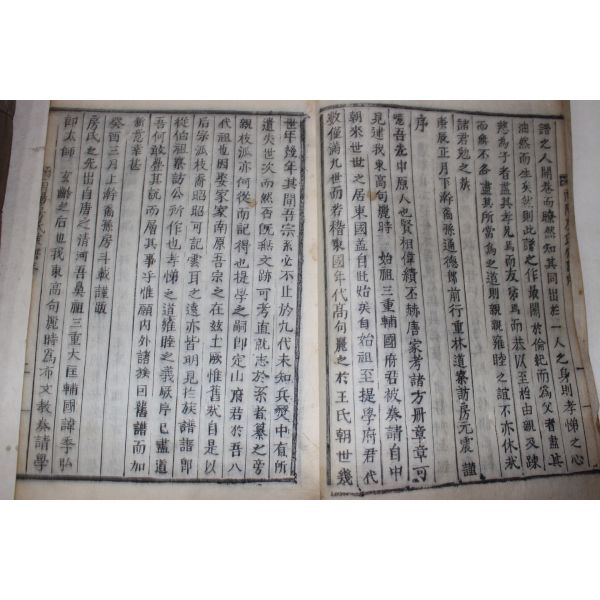 譜之人開卷而瞭然知其同出於一人之身則孝悌之心
油然而生矣然則此譜之作最關於倫紀而爲父者盡其
慈爲子者盡其孝凡爲而友弟爲而恭以至於由親及踈
而無不各盡其所當爲之道則親親睦之誼不亦休哉
諸君勉之哉
庚辰正月下澣裔孫通德郞前行重林道察訪房元震謹
序
噫吾先中原人也賢相偉績丕赫唐家考諸方冊章章可
見逮我東高句麗時 始祖三重輔國府君被奉請自中
朝來世世之居東國盖自此始矣自始祖至提學府君代
數僅滿九世而若稽東國年代高句麗之於王氏朝世幾
世年幾年其間吾宗系必不止於九代未知兵燹中有所
遺失世次而然否旣無文跡可考直就志於系者纂之旁
親枝派亦何從而記得也提學之嗣卽定山府君於吾八
代祖也因娶家家南原吾宗之在玆土厥惟舊哉自是以
后宗派枝裔昭昭可記雲耳之遠亦皆明見於族譜譜卽
從伯祖察訪公所作也孝悌之道雍睦之義厥序已盡道
吾何敢疊其說而層其事乎惟願內外諸族因舊譜而加
新意幸甚
癸酉三月上澣裔孫房斗載謹敬
房氏之先出自唐之淸河吾鼻祖三重大匡輔國諱季弘
卽太師 玄齡之后也我東高句麗時爲布文敎奉請學